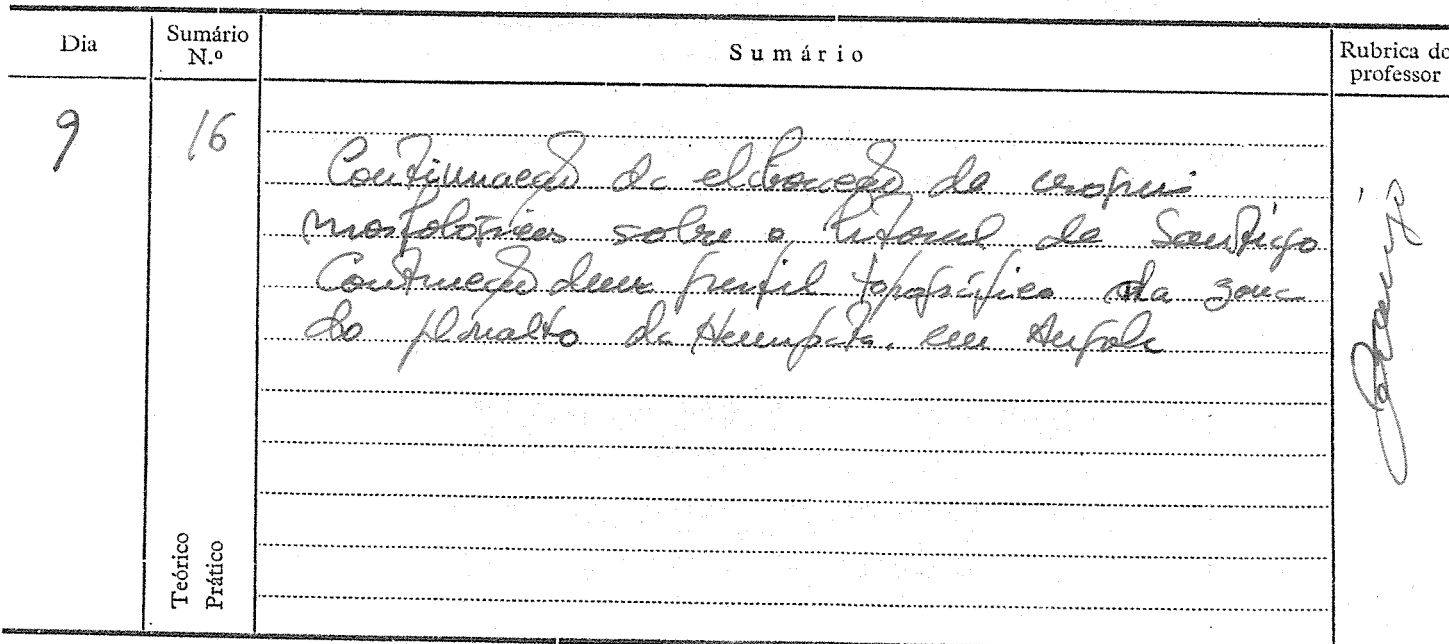 Dia
Sumário N.º
Sumário
Rubrica do professor
9
16
Continuação da elaboração de croquis
morfológicos sobre o litoral de Santiago
Construção dum perfil topográfico da zona
do planalto da Humpata, em Angola
Teórico
Prático